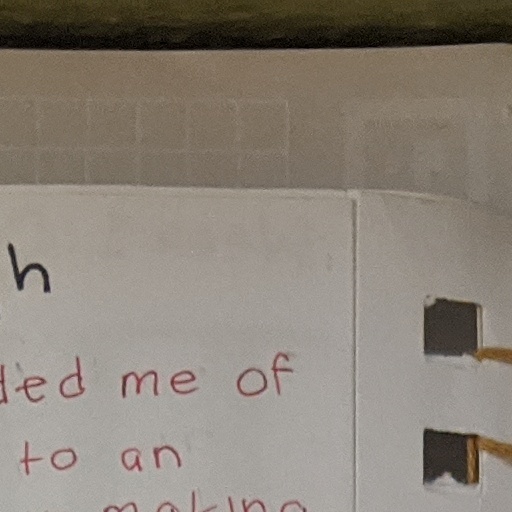 h
ded me of
to an
making